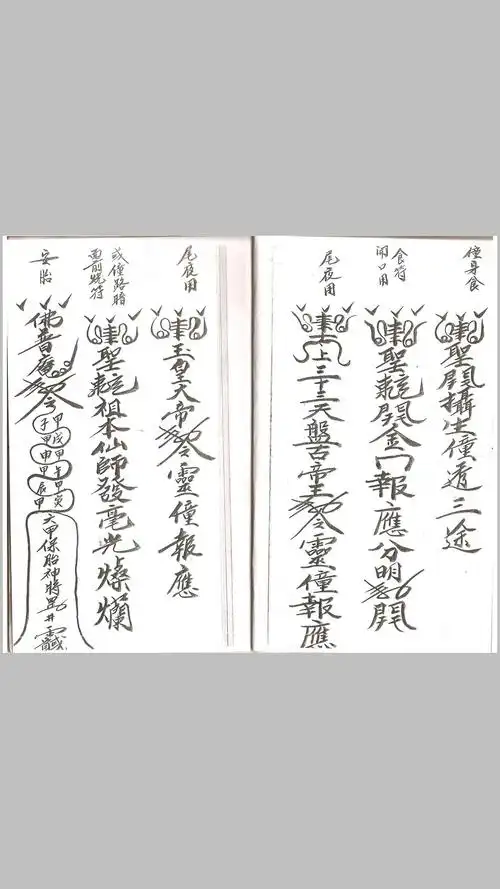 僮身食
聖開攝生僮道三途
食符
開口用
聖乾開金口報應分明開
尾夜用
上三十三天盤古帝王敕令靈僮報應
尾夜用
玉皇大帝敕令靈僮報應
或僮路暗
面前燒符
聖乾祖本仙師發毫光燦爛
安胎
佛普庵敕令
甲子
甲戌
甲申
甲午
甲辰
甲寅
六甲保胎神將